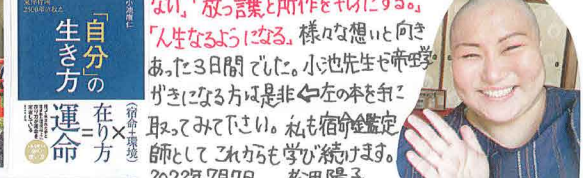 小池康仁
「自分」の
生き方
《宿命＋環境》
×
在り方
＝
運命
ない」「放つ言葉と所作をキレイにする。」
「人生なるようになる」様々な想いと向き
あった3日間でした。小池先生や帝王学
がきになる方は是非⇦左の本を手に
取ってみて下さい。私も宿命鑑定
師としてこれからも学び続けます。
2022年7月7日